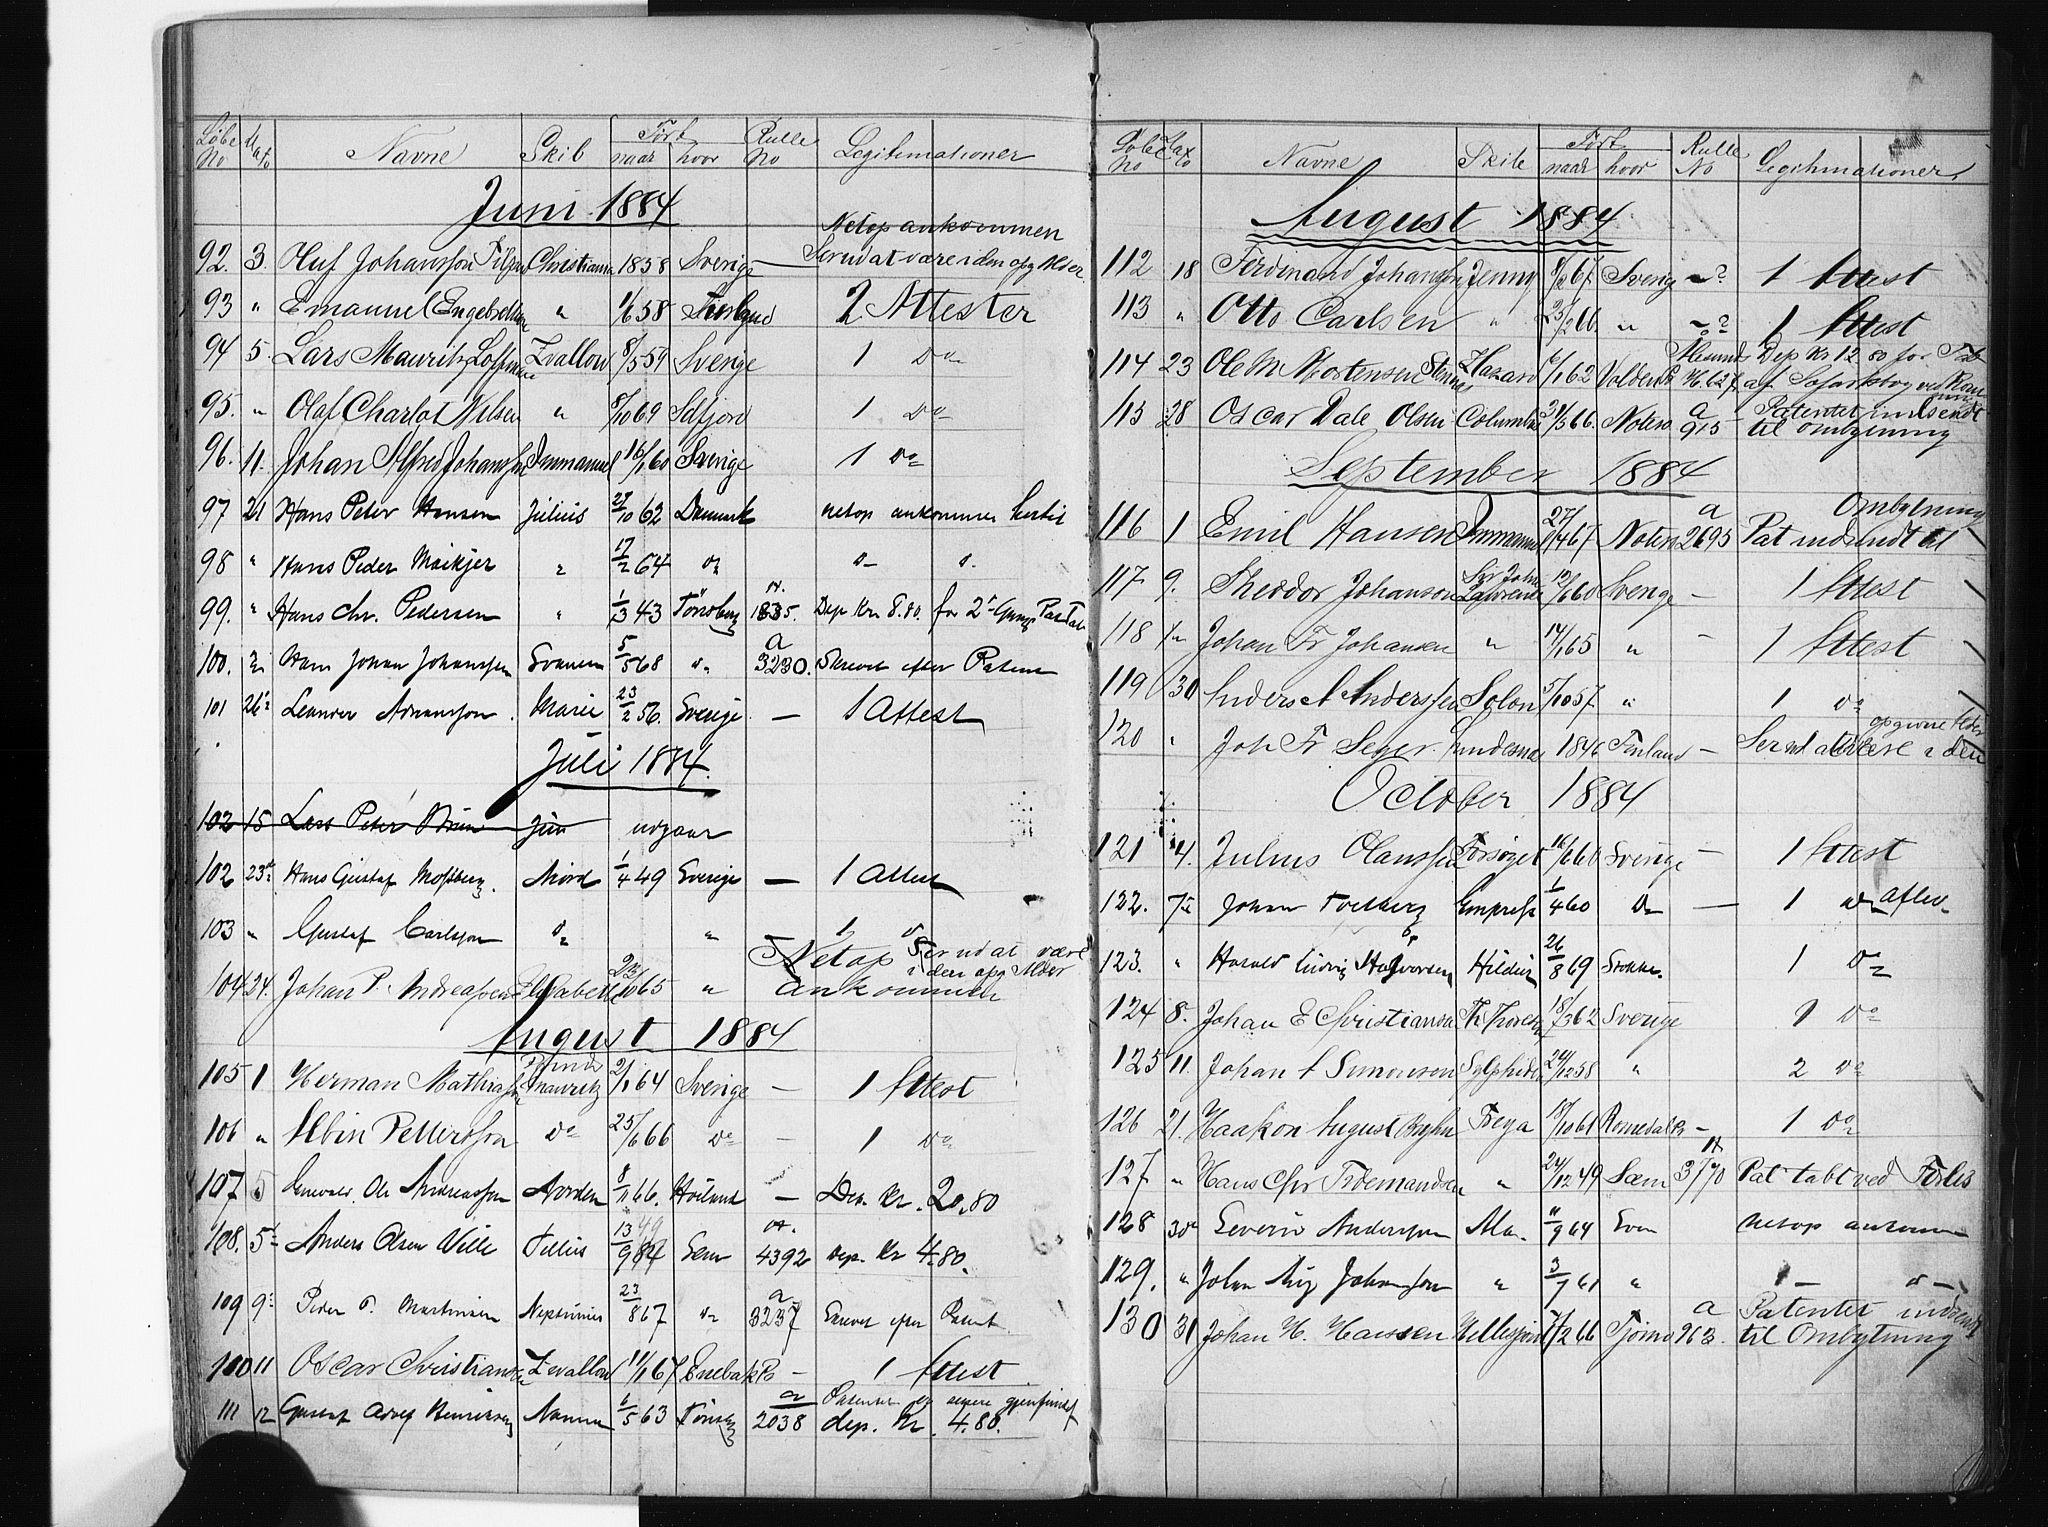 Løbe No Dato Navne Skib Født naar hvor Rulle No Legitimationer
Juni 1884
Netop ankommen
92. 3. Oluf Johansson Christiania 1858 Sverige Ser ud at være i den opg Alder
93 " Emanuel Engebretsen " 1/6 58 2 Attester
94 5. Lars Mauritz Zvallow 8/5 59 Sverige 1 Do
95. " Olaf Charlot Nilsen " 8/10 69 Selfjord 1 Do
96. 11. Johan Alfred Johansson Immanuel 16/1 60 Sverige 1 Do
97 21 Hans Peter Hansen Julius 29/10 62 Danmark netop ankommen hertil
98 " Hans Peder Maikjer " 17/2 64 Do
99. " Hans Chr. Pedersen " 1/3 43 Tönsberg A. 1835. Dep Kr. 8.80. for 2den Gangs Pat Tab
100. Hans Johan Johanssen Svanen 5/5 68 Do a 3230. Skrevet efter Patent
101 26de Leander Adriansson. Marie 23/2 56. Sverige — 1 Attest
Juli 1884.
102 15 Lars Peter udgaar
102 23de Hans Gustaf Mossberg. Nord 1/4 49 Sverige — 1 Attest
103 " Gustaf Carlsson Do " 1 Do
104 24. Johan P. Andreassen Elisabeth 65 " Netop ankommen Ser ud at være i den opg Alder
August 1884
105 1 Herman Mathiassen Mauritz 2/1 64 Sverige — 1 Attest
106 " Albin Pettersson Do 25/6 66 Do — 1 Do
107 5 Ole Andreassen Norden 8/11 66. — Dep. Kr. 20.80
108. 5te Anders Olsen Ville Tellus 13/9 49 Sem A. 4392 Dep. Kr 4.80.
109 9de Peder O. Martinsen Neptunus 23/8 67 Do a 3237 Skrevet efter Patent.
100 11 Oscar Christiansen Zvallow 11/1 67 Enebak — 1 Attest
111 12 Gustaf Adolf Henriksen Nanna 6/5 63 Tönsberg a 2038 Patentet senere gjenfundet dep. Kr. 4.80.
Løbe No Dato Navne Skib Født naar hvor Rulle No Legitimationer
August 1884.
112 18 Ferdinand Johanssen Jenny 67. Sverig — ? 1 Attest
113 " Otto Carlsen " 25/2 66. " — ? 1 Attest
114 23 Ole M Mortensen Stennes Hazard 6/1 62 Volden Aalesund No 627 Dep Kr 12 80 for Tab af Søfartsbog
115 28 Oscar Dale Olsen Columbus 31/5 66. Noterø a 915 Patentet indsendt til ombytning
September 1884
116 1 Emil Hansen Immanuel 27/4 67 Noterø a 2695 Pat indsendt til Ombytning
117 9. Theodor Johanson Sir John Lawrence 19/6 60 Sverige — 1 Attest
118 Johan Fr Johansen " 14/1 65 " — 1 Attest
119 30 Anders A Anderssen Solon 5/10 57 " 1 Do
120 " Joh Fr Seger. 1846 Finland — Ser ud at være i den opgivne Alder
October 1884
121 4. Julius Olanssen Forsøget 16/6 60 Sverige — 1 Attest
122. 7de Johan Torsberg Empress 1/4 60 Do — 1 Do
123. " Harald Ludvig Halvorsen Hildur 26/8 69 Stokke. 1 Do
124 8. Johan E Christiansen 18/3 62 Sverige 1 Do
125 11. Johan A Simonson Sylphiden 24/12 58 " 2 Do
126 21. Haakon August Bryhn Freya 18/10 61 Romedal — 1 Do
127 " Hans Chr Ferdinandsen " 24/12 49 Sæm A 3770 Pat tabt ved Forlis
128 30 Severin Andersson Alm. 11/9 64 Sven netop ankommen
129. " Johan Aug Johansson " 3/7 61 "
130 31 Johan H. Hanssen Hellesponten 7/2 66 Tjømø a 963. Patentet indsendt til Ombytning